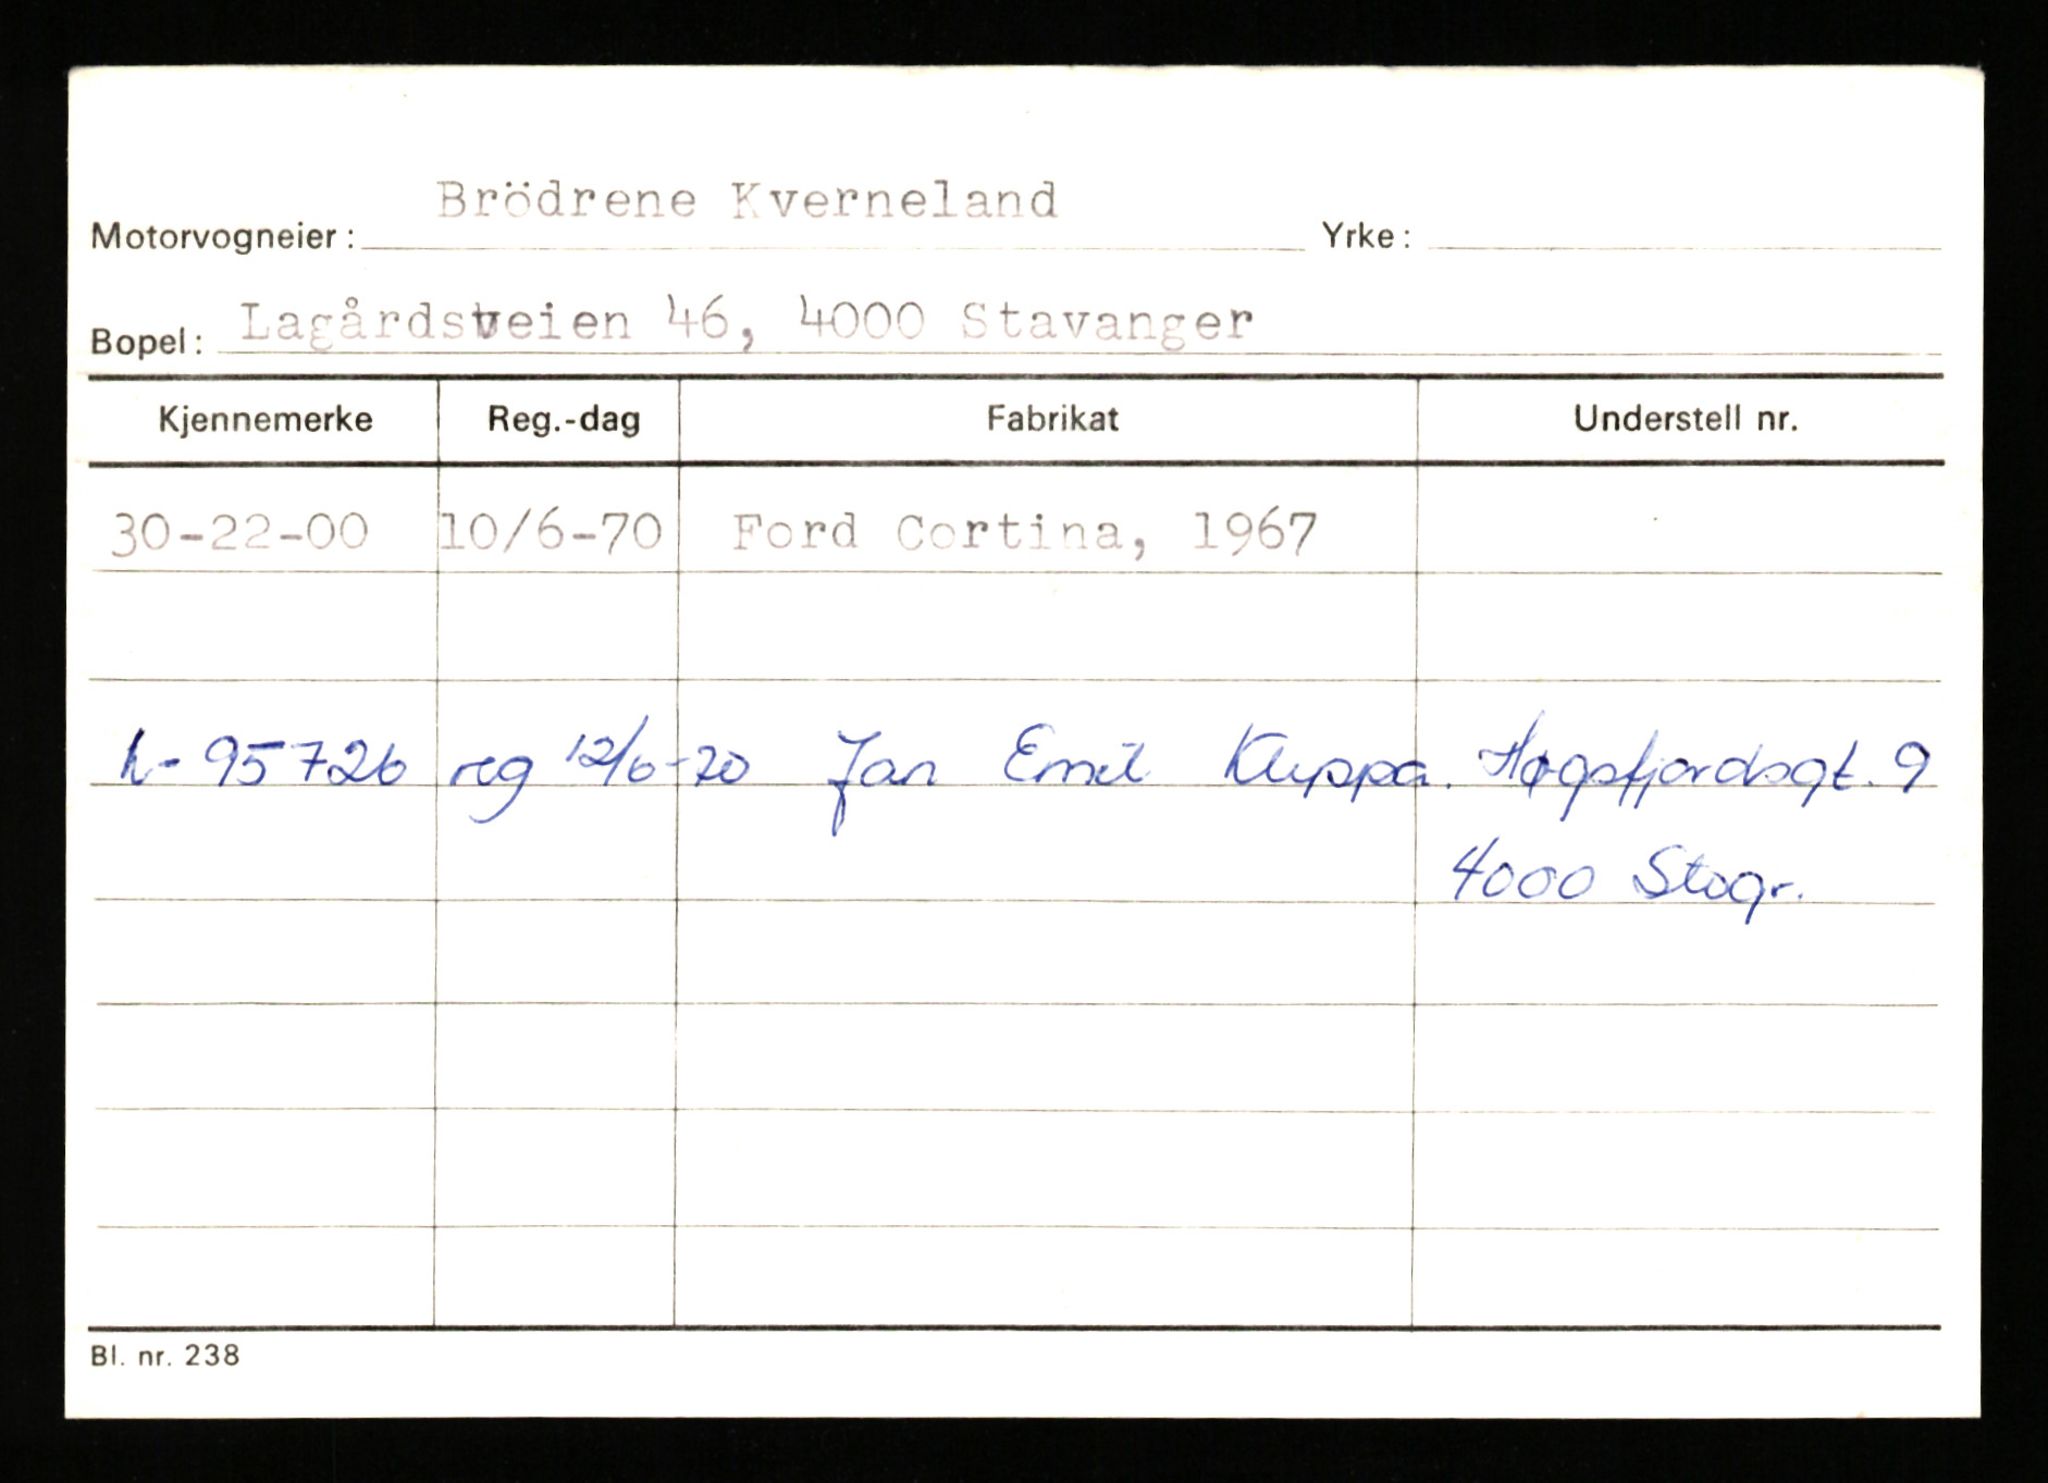 Brödrene Kverneland
Motorvogneier: Yrke:
Bopel: Lagårdsveien 46, 4000 Stavanger
Kjennemerke Reg.-dag Fabrikat Understell nr.
30-22-00 10/6-70 Ford Cortina, 1967
L- 95726 reg 12/6-70 Jan Emil Kluppa. Høgsfjordsgt. 9
4000 Stvgr.
Bl. nr. 238